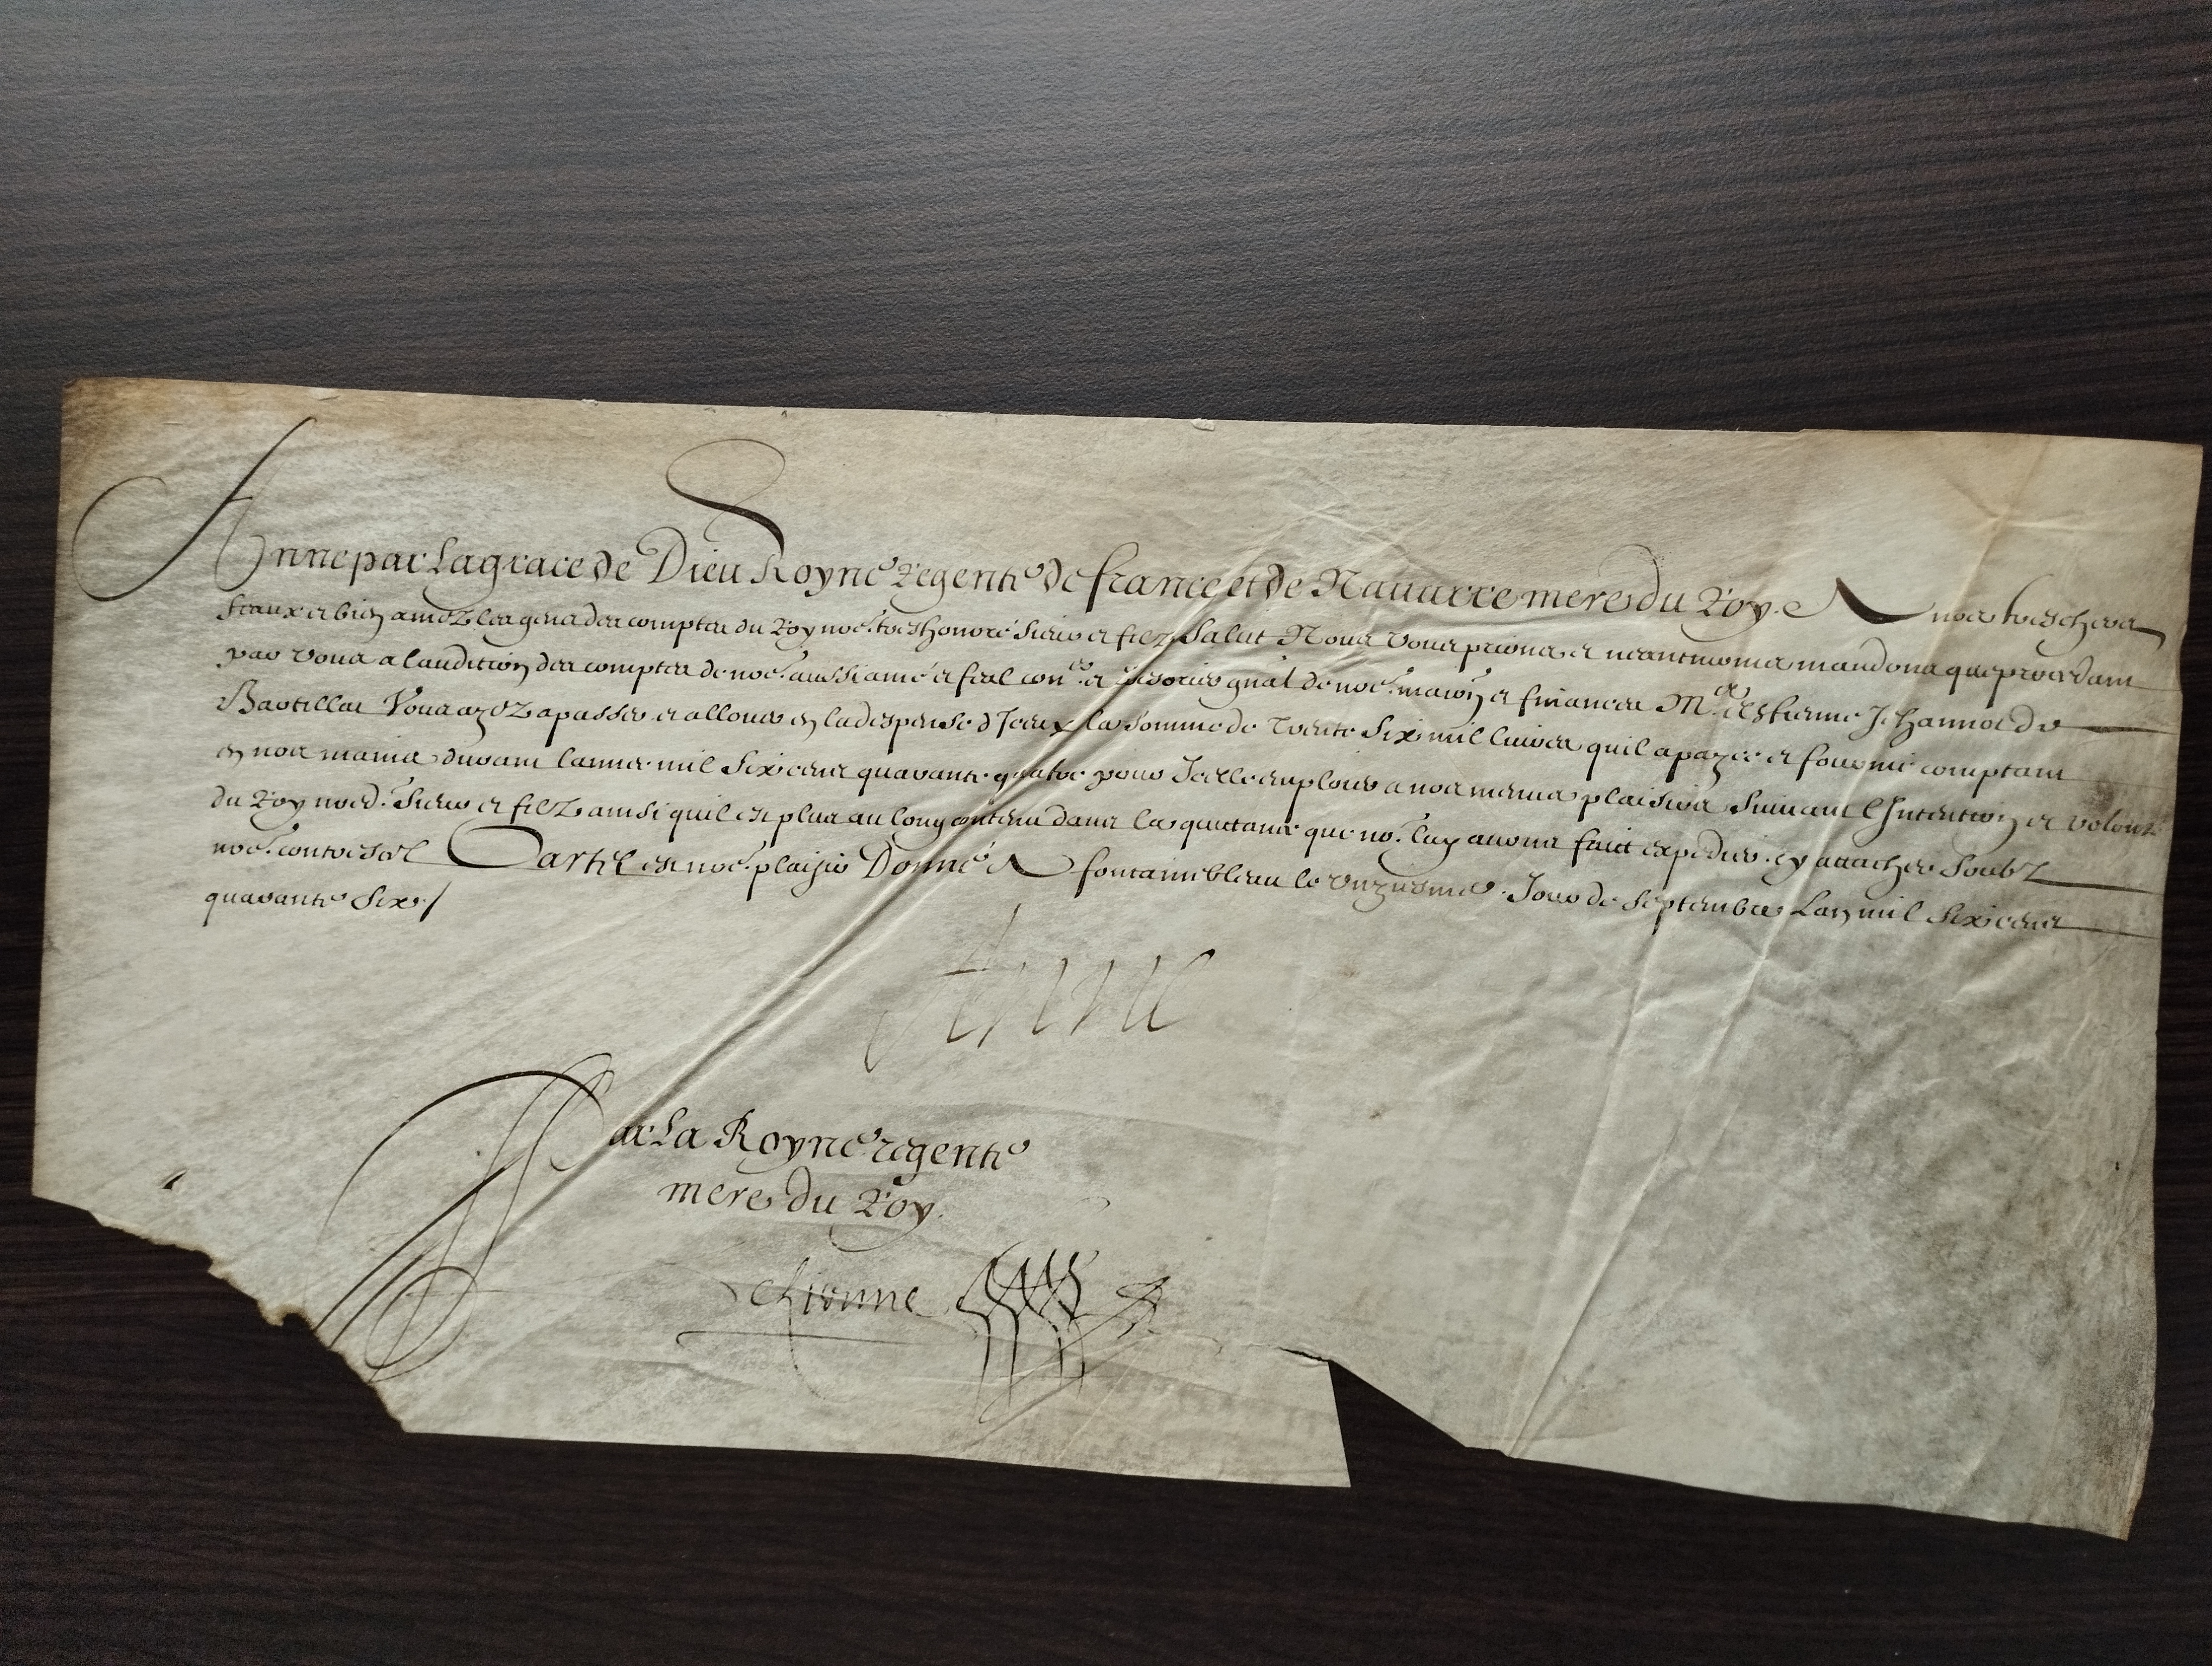 Anne par La grace de Dieu Royne Regente de france et de Nauarre mere du Roy. A nos tres chers
feaux et bien amez les gens des comptes du Roy nore. tres honoré sieur et filz Salut Nous Vous prions et neantmoins mandons que procedant
par vous a laudition des comptes de nore. aussi amé et feal coner. et tresorier gnal de nore. maison et finances Me. Estienne Jehannot de
Bartillat Vous ayez a passer et allouer en la despense d'Iceux la somme de Trente Six mil liures quil a payée et fournie comptant
en nos mains durant lannee mil Six cens quarante quatre pour Icelle emploier a nos menus plaisirs Suiuant l'Intention et volonté
du Roy nored. sieur et filz ainsi quil est plus au long contenu dans la quittance que nos. luy auons faict expedier cy attachee soubz
nore. contrescel Car tel est nore. plaisir Donné A fontainebleau le unziesme Jour de Septembre Lan mil Six cens
quarante Six /
Anne
Par La Royne regente
mere du Roy.